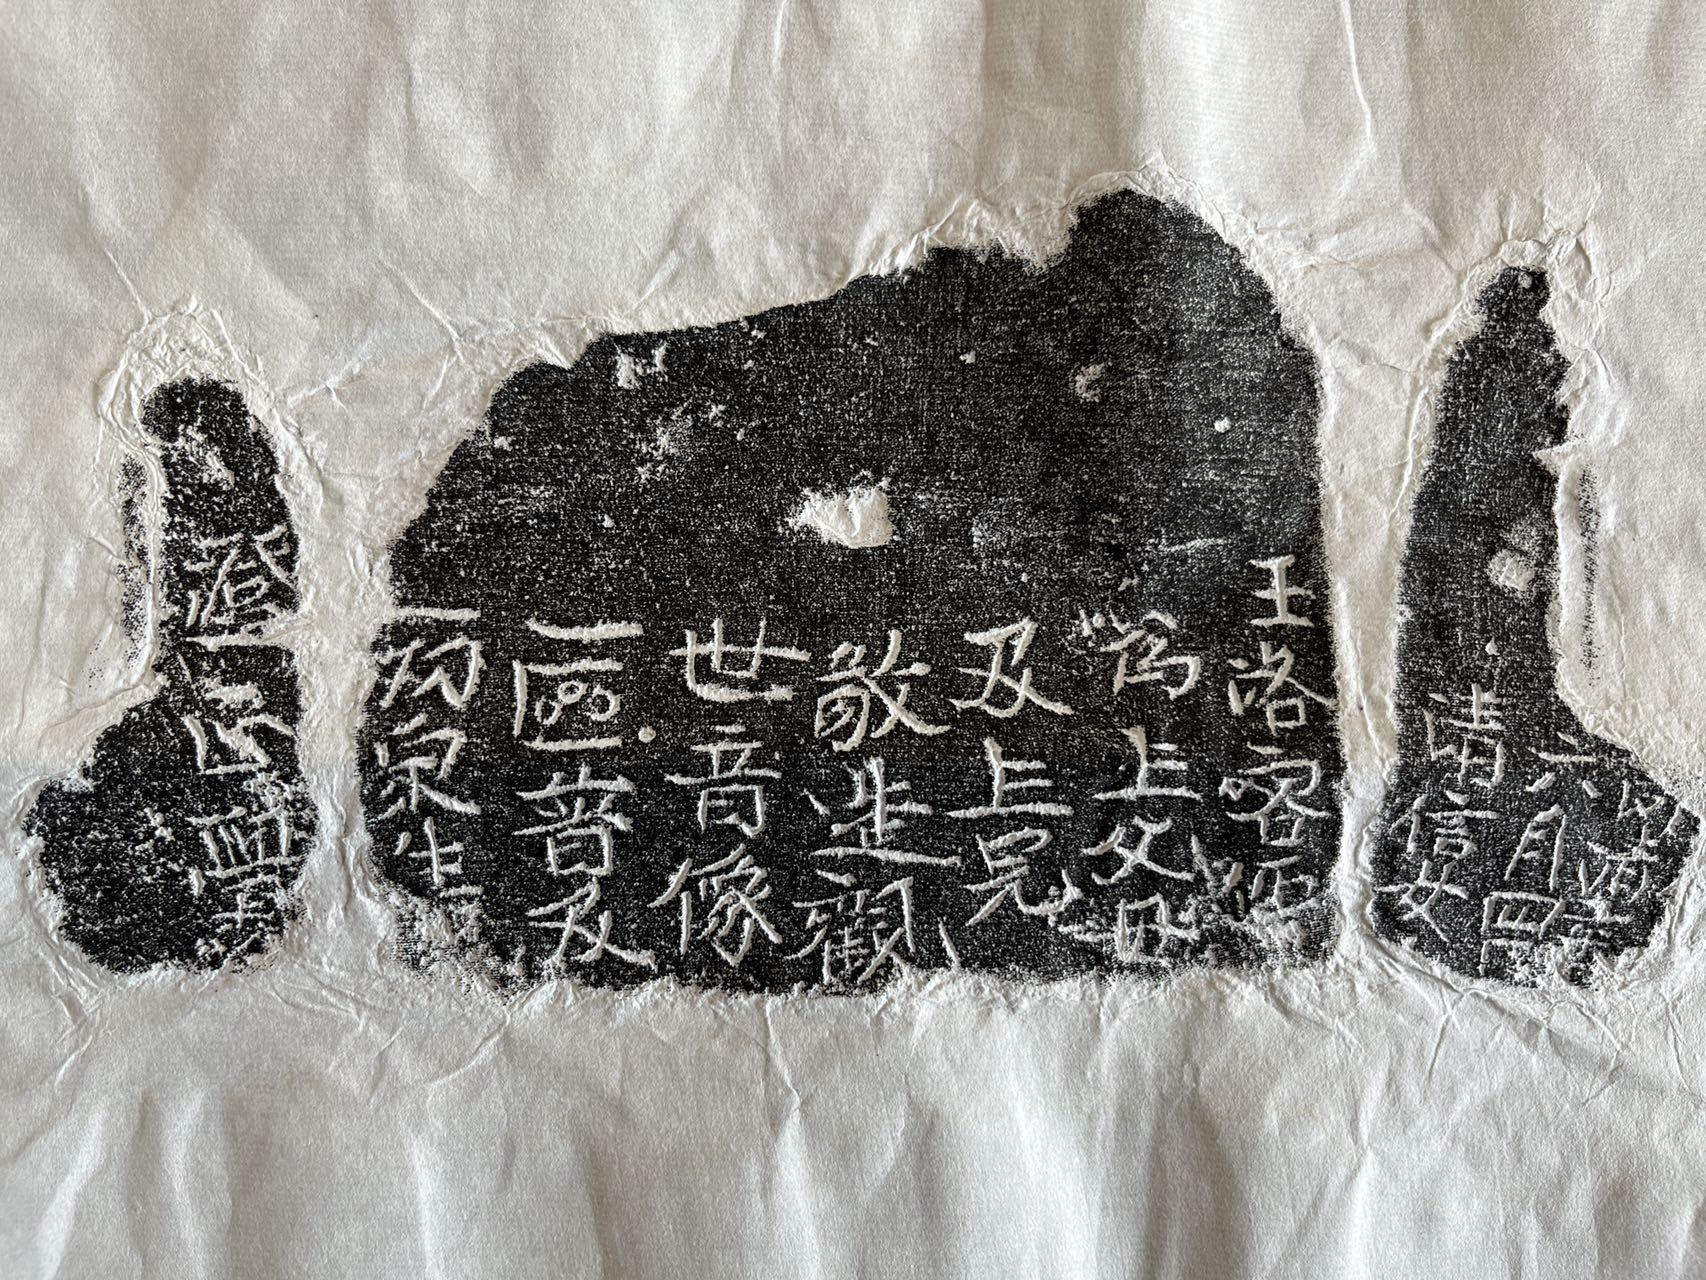 六月四
清信女
王洛容
為上父母
及上兄
敬造觀
世音像
一區普及
一切衆生
登正覺